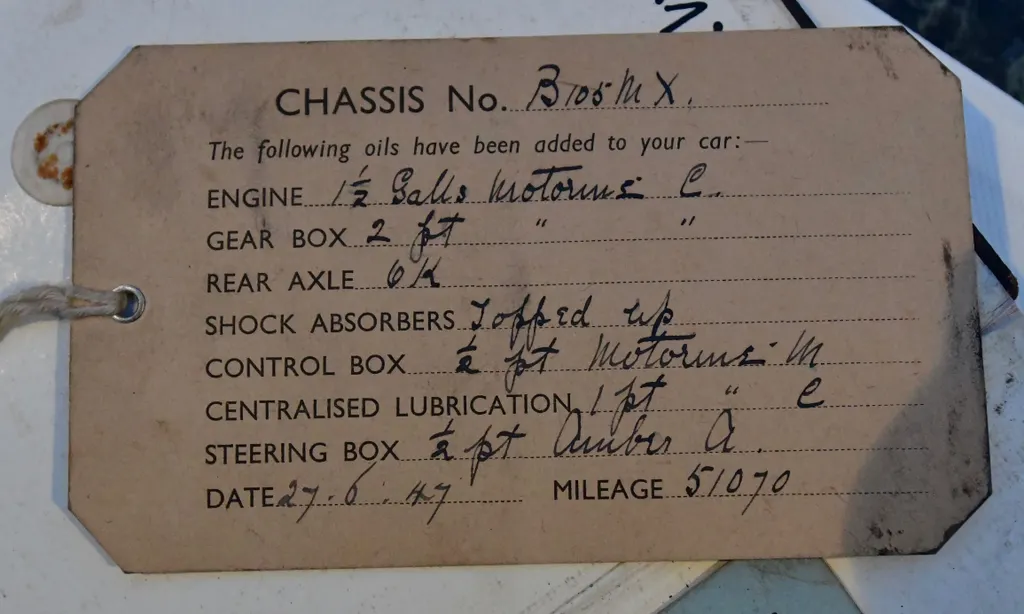 CHASSIS No. B105MX.
The following oils have been added to your car:—
ENGINE 1½ Galls Motorine C.
GEAR BOX 2 pt " "
REAR AXLE OK
SHOCK ABSORBERS Topped up
CONTROL BOX ½ pt Motorine M
CENTRALISED LUBRICATION 1 pt " C
STEERING BOX ½ pt Amber A.
DATE 27.6.47 MILEAGE 51070